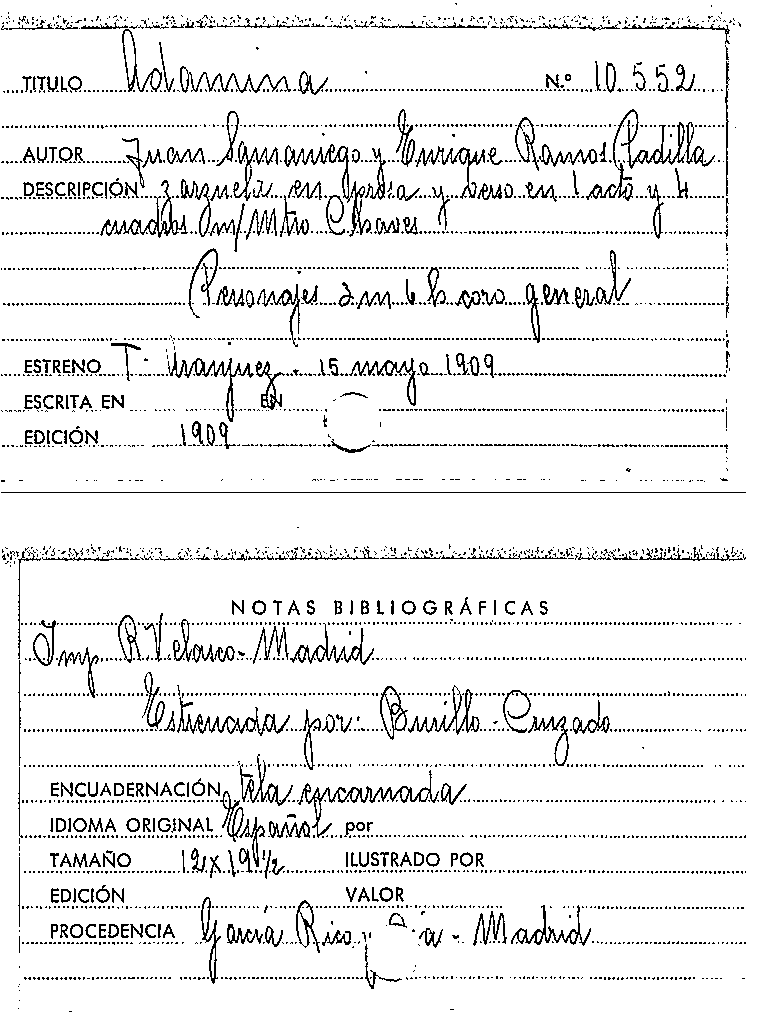 TITULO Adamina N.º 10.552
AUTOR Juan Samaniego y Enrique Ramos Padilla
DESCRIPCIÓN Zarzuela en prosa y verso en 1 acto y 4
cuadros Mtro Chaves
Personajes 2 m 6 h coro general
ESTRENO T. Aranjuez. 15 mayo 1909
ESCRITA EN EN
EDICIÓN 1909
NOTAS BIBLIOGRÁFICAS
Imp R. Velasco - Madrid
Estrenada por: Burillo - Cruzado
ENCUADERNACIÓN tela encarnada
IDIOMA ORIGINAL Español por
TAMAÑO 12 x 19 1/2 ILUSTRADO POR
EDICIÓN VALOR
PROCEDENCIA García Rico y - Madrid